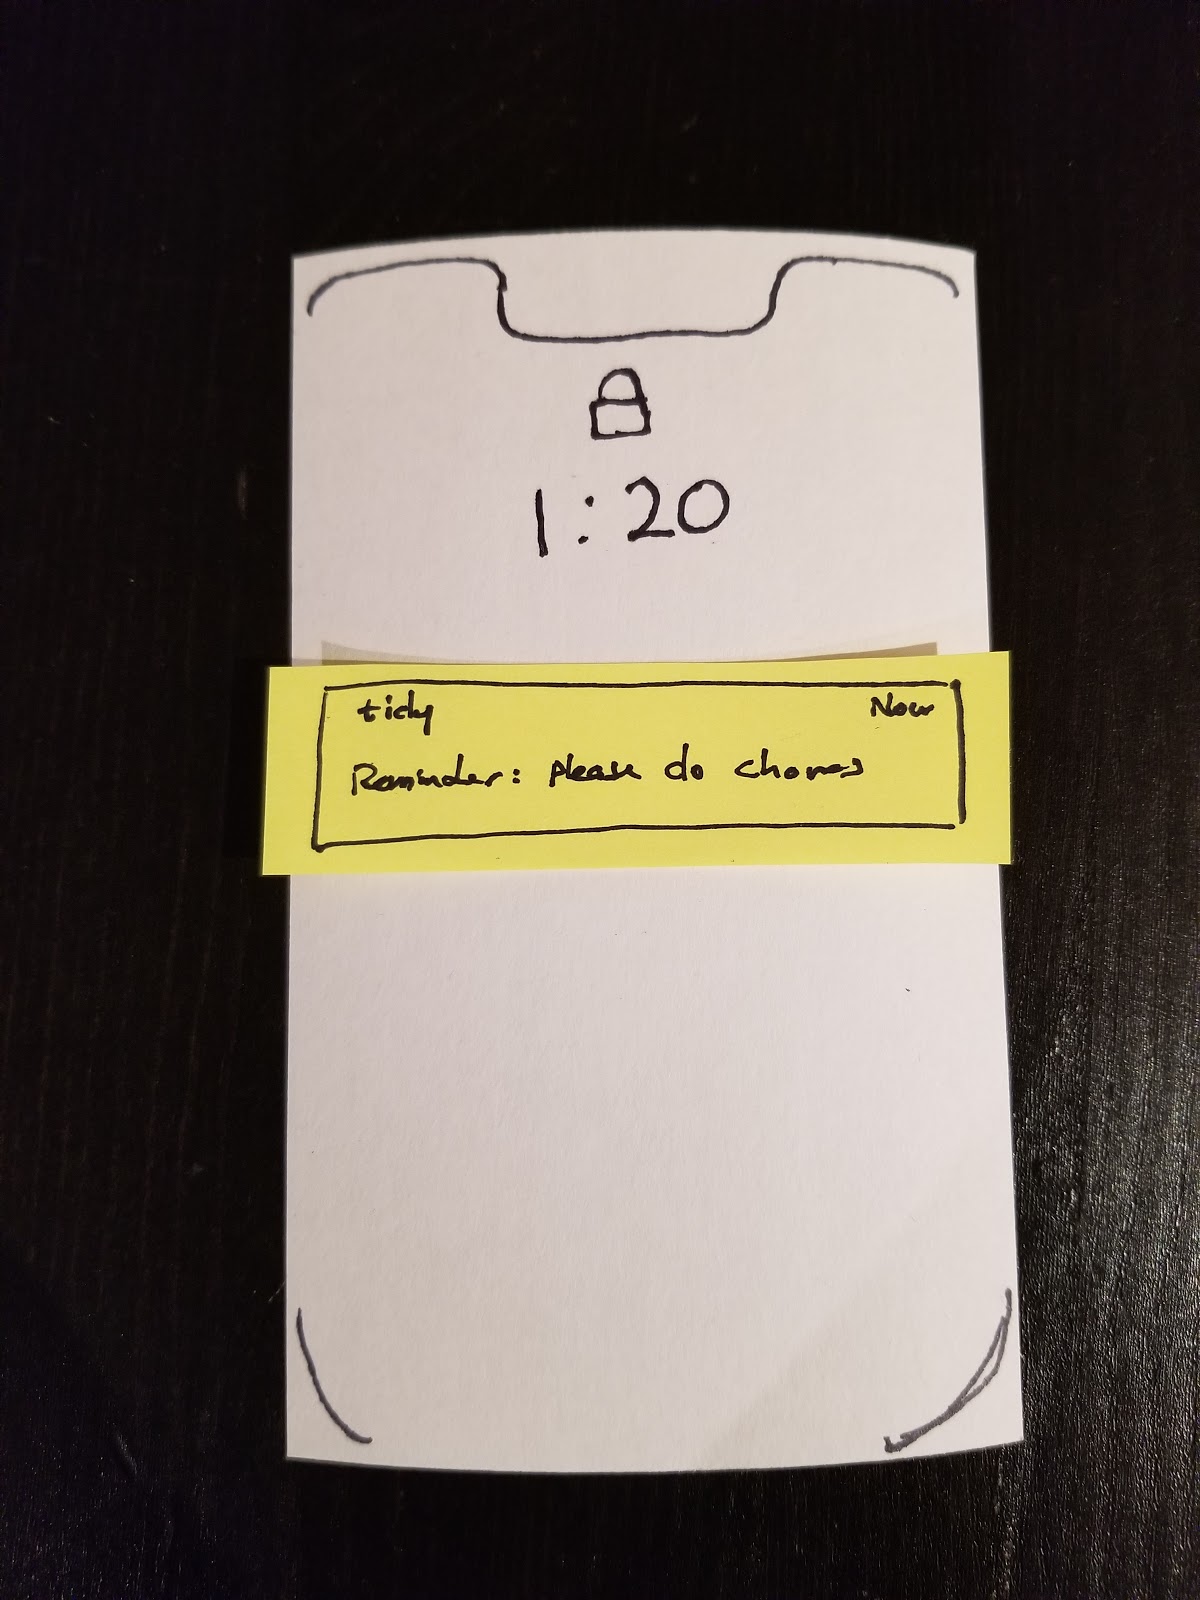 1:20
tidy Now
Reminder: Please do chores